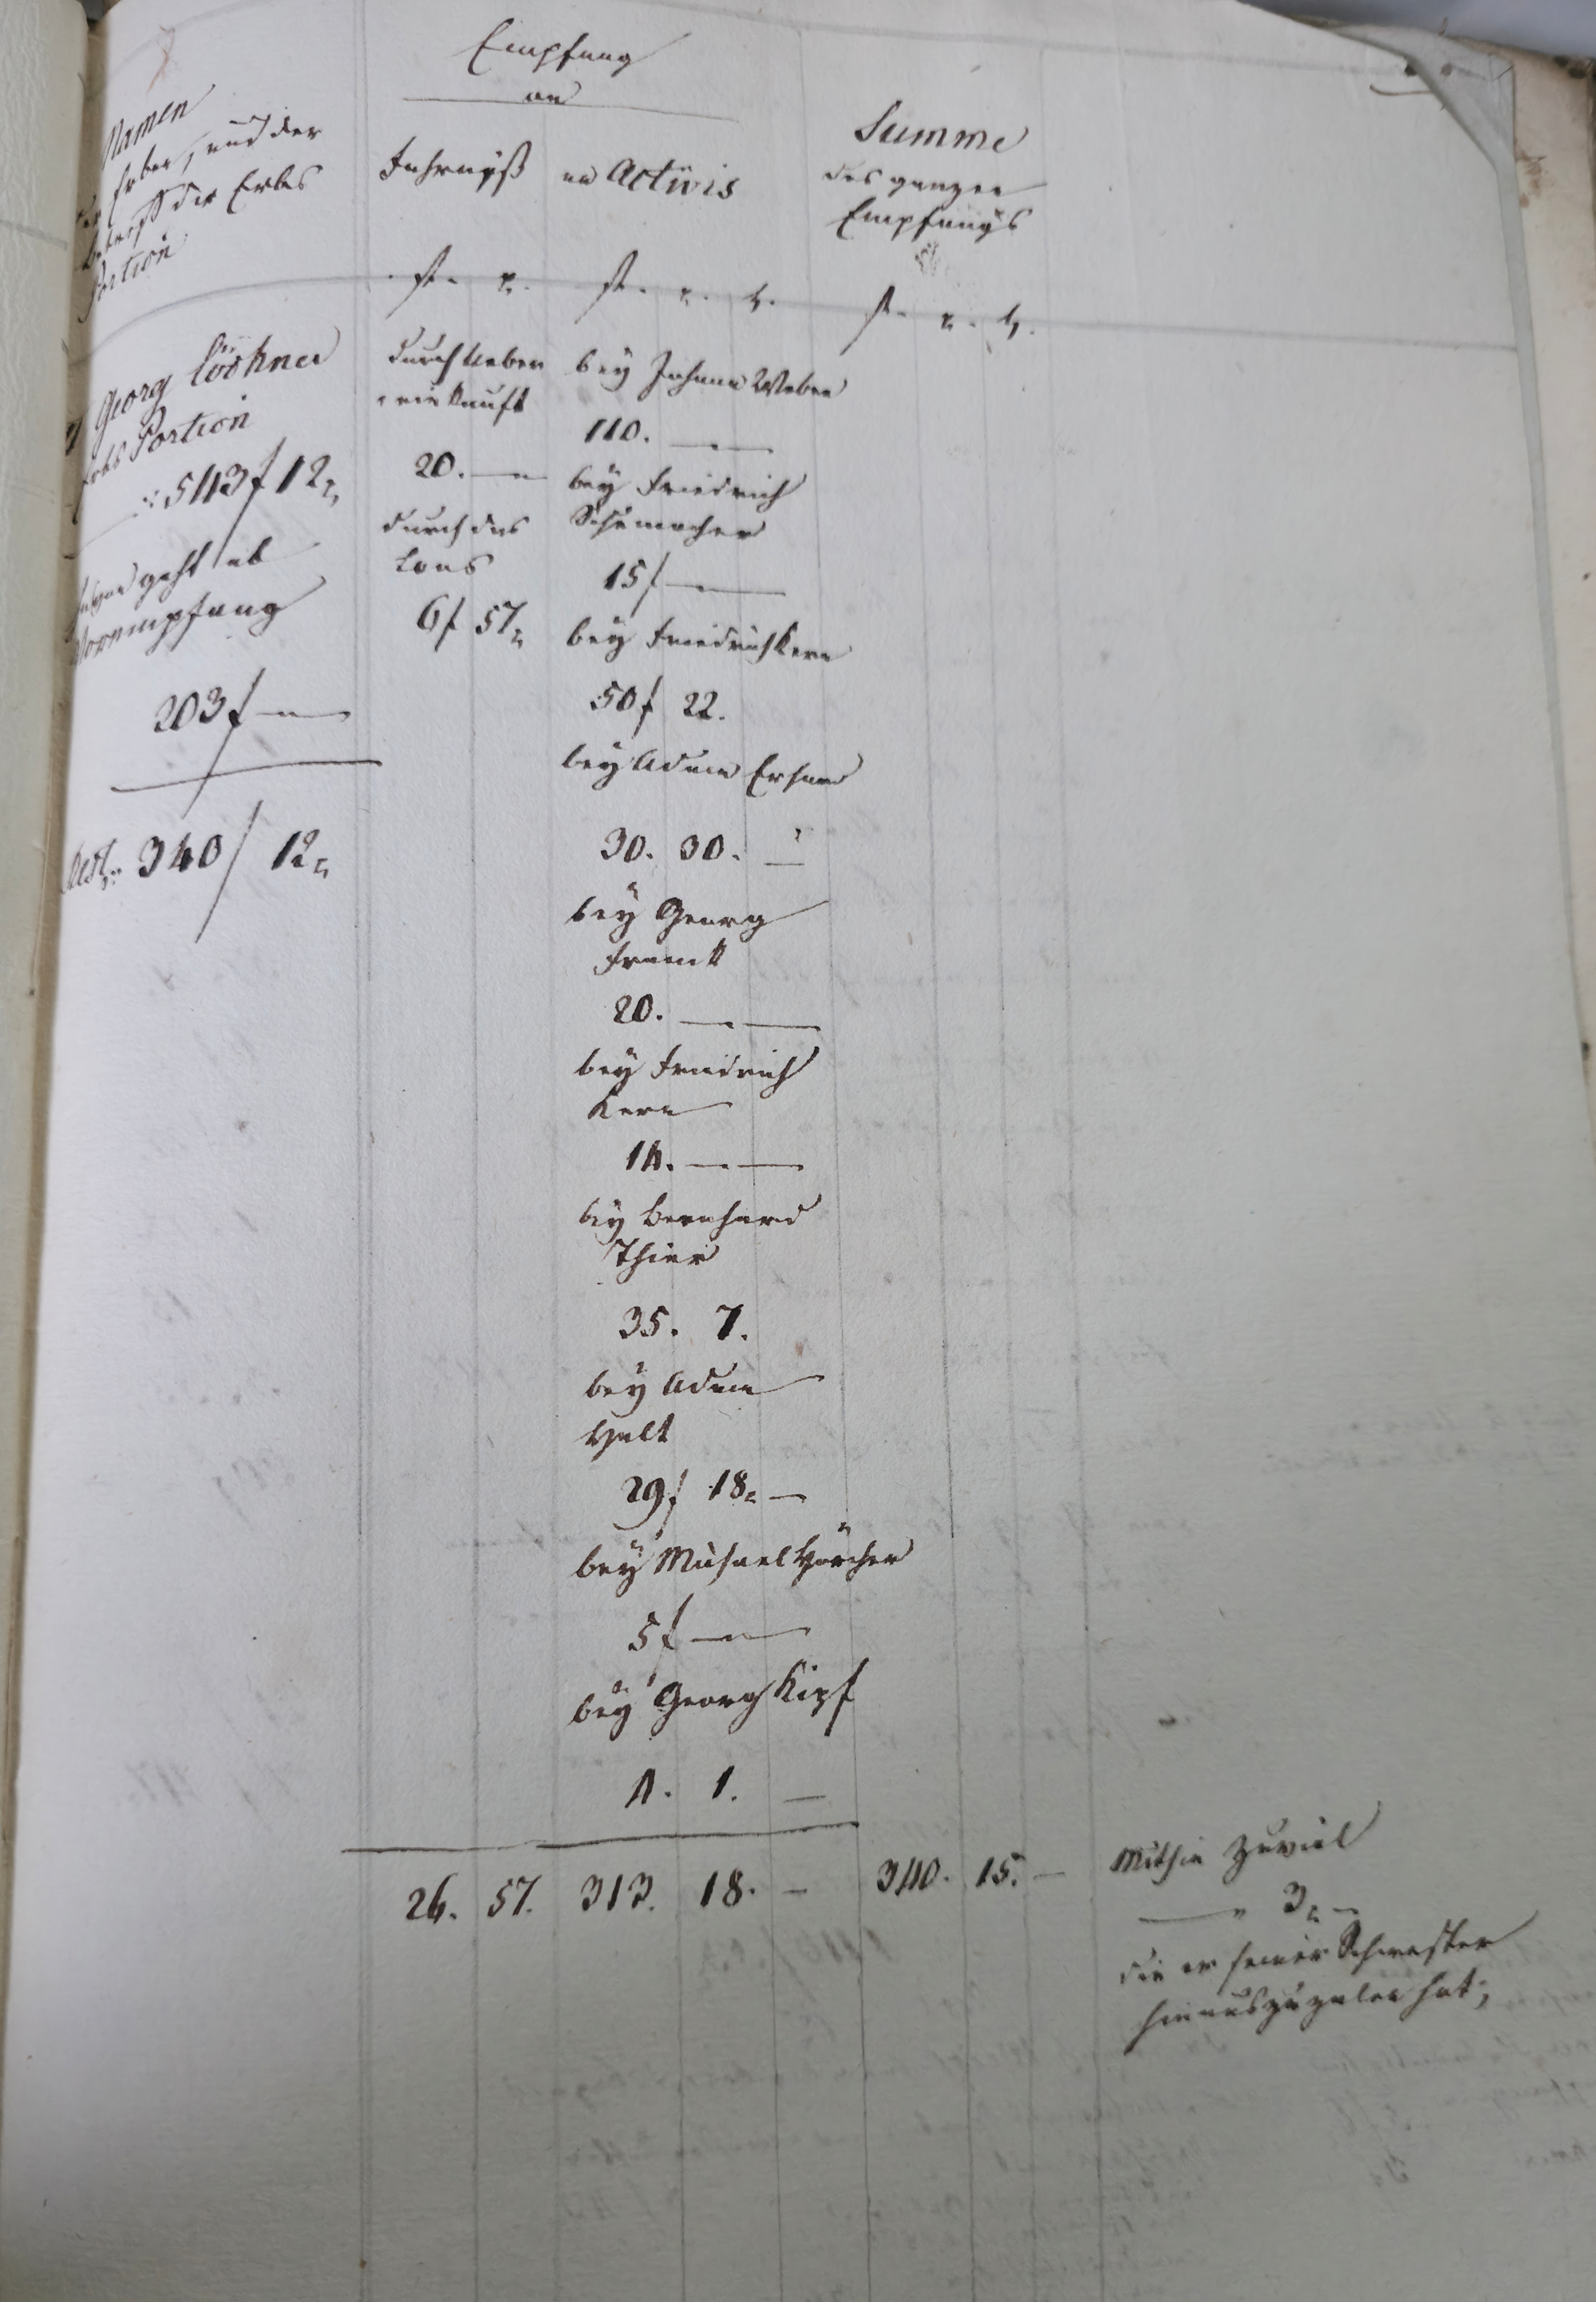 Empfang
an
Namen
der Erben, und der
Betreff der Erbs
Portion
Fahrnyß
an Activis
Summe
des ganzen
Empfangs
fl. x.
fl. x. h.
fl. x. h.
Georg Löschner
Erbs Portion
:543 f 12 x
davon geht ab
Vorempfang
203 f —
Rest: 340 f 12 x
durch Ueber
einkunft
20. —
durch das
Loos
6 f 57 x
bey Johann Weber
110. —
bey Friedrich
Schumacher
15 f —
bey Friedrich Kern
50 f 22.
bey Adam
30. 30. —
bey Georg
Frank
20. — —
bey Friedrich
Kern
14. — —
bey Bernhard
Thier
35. 7.
bey Adam
Halt
29 f 18 x —
bey Michael Hörcher
5 f —
bey Georg Kipf
4. 1. —
26. 57. 313. 18. — 340. 15. —
Mithin zuviel
— " 3 x —
die er seiner Schwester
hinauszuzalen hat;